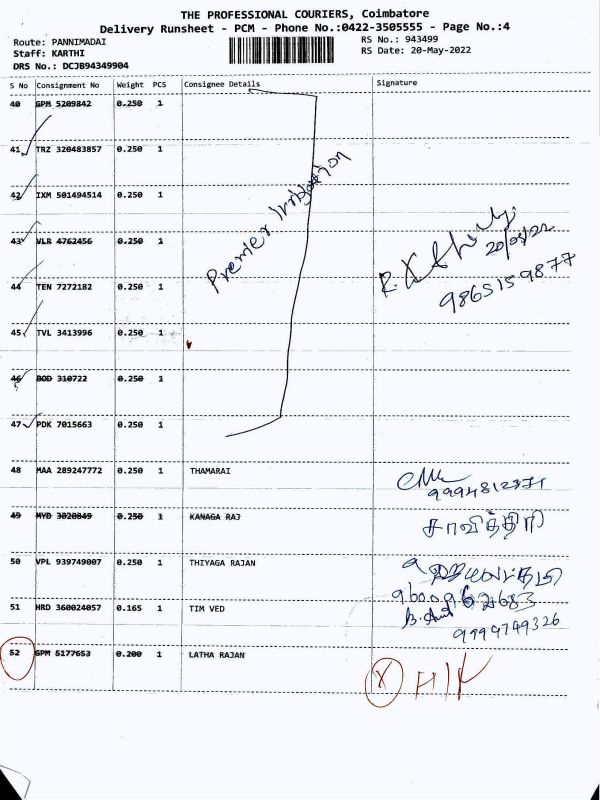 THE PROFESSIONAL COURIERS, Coimbatore
Delivery Runsheet - PCM - Phone No.:0422-3505555 - Page No.:4
Route: PANNIMADAI RS No.: 943499
Staff: KARTHI RS Date: 20-May-2022
DRS No.: DCJB94349904
S No Consignment No Weight PCS Consignee Details Signature
40 GPM 5209842 0.250 1
41 TRZ 320483857 0.250 1
42 IXM 501494514 0.250 1
Premier Irrigation
43 VLR 4762456 0.250 1
20/05/22
44 TEN 7272182 0.250 1
9865159877
45 TVL 3413996 0.250 1
46 BOD 310722 0.250 1
47 PDK 7015663 0.250 1
48 MAA 289247772 0.250 1 THAMARAI
49 MYD 3020849 0.250 1 KANAGA RAJ சாவித்திரி
50 VPL 939749007 0.250 1 THIYAGA RAJAN
51 HRD 360024057 0.165 1 TIM VED
9999749326
52 GPM 5177653 0.200 1 LATHA RAJAN